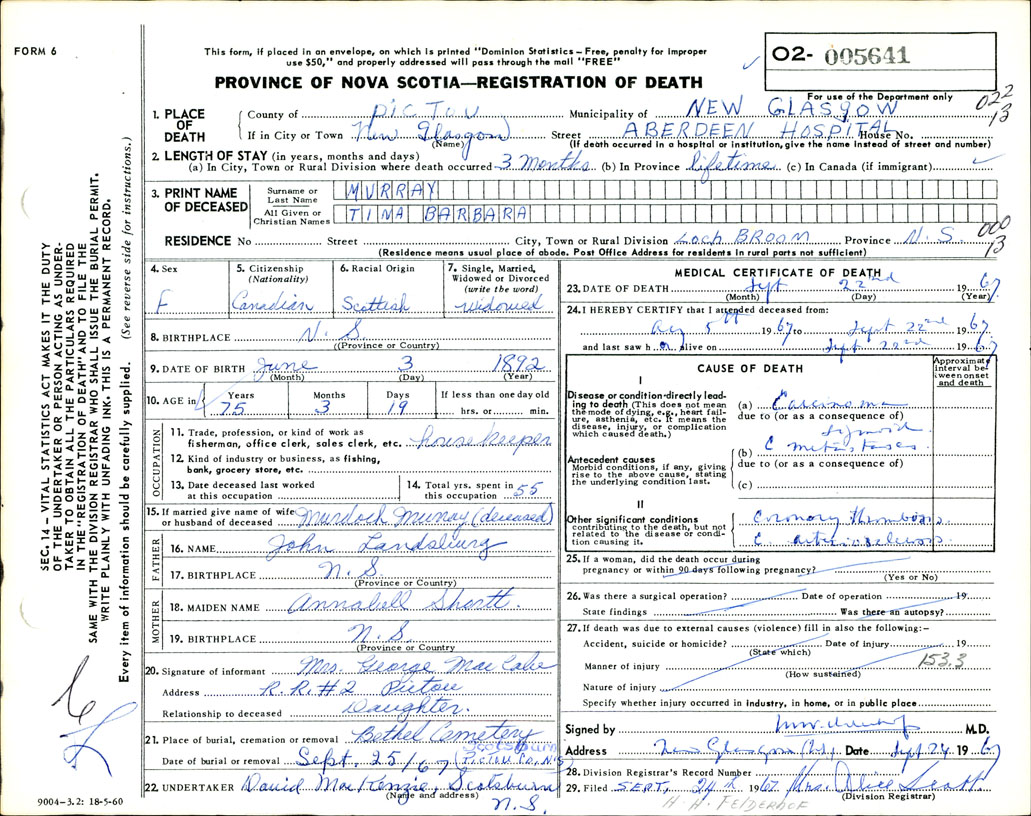 FORM 6
This form, if placed in an envelope, on which is printed "Dominion Statistics – Free, penalty for improper
use $50," and properly addressed will pass through the mail "FREE"
PROVINCE OF NOVA SCOTIA—REGISTRATION OF DEATH
02- 005641
For use of the Department only
022
13
1. PLACE OF DEATH
County of PICTOU Municipality of NEW GLASGOW
If in City or Town New Glasgow Street ABERDEEN HOSPITAL House No.
(Name) (If death occurred in a hospital or institution, give the name instead of street and number)
2. LENGTH OF STAY (in years, months and days)
(a) In City, Town or Rural Division where death occurred 3 Months (b) In Province lifetime (c) In Canada (if immigrant)
3. PRINT NAME OF DECEASED
Surname or Last Name MURRAY
All Given or Christian Names TINA BARBARA
RESIDENCE No Street City, Town or Rural Division Loch BROOM Province N.S.
000
13
(Residence means usual place of abode. Post Office Address for residents in rural parts not sufficient)
4. Sex F
5. Citizenship (Nationality) Canadian
6. Racial Origin Scottish
7. Single, Married, Widowed or Divorced (write the word) widowed
8. BIRTHPLACE N.S.
(Province or Country)
9. DATE OF BIRTH June 3 1892
(Month) (Day) (Year)
10. AGE in Years 75 Months 3 Days 19 If less than one day old hrs. or min.
OCCUPATION
11. Trade, profession, or kind of work as
fisherman, office clerk, sales clerk, etc. housekeeper
12. Kind of industry or business, as fishing,
bank, grocery store, etc.
13. Date deceased last worked
at this occupation
14. Total yrs. spent in
this occupation 55
15. If married give name of wife
or husband of deceased Murdoch Murray (deceased)
FATHER
16. NAME John Landsburg
17. BIRTHPLACE N.S.
(Province or Country)
MOTHER
18. MAIDEN NAME Annabell Shortt.
19. BIRTHPLACE N.S.
(Province or Country)
20. Signature of informant Mrs. George MacCabe
Address R.R.#2 Pictou
Relationship to deceased Daughter.
21. Place of burial, cremation or removal Bethel Cemetery
Scotsburn
Date of burial or removal Sept. 25/67 (Pictou Co, N.S.)
22. UNDERTAKER David MacKenzie, Scotsburn
(Name and address) N.S.
9004–3.2: 18-5-60
MEDICAL CERTIFICATE OF DEATH
23. DATE OF DEATH Sept 22nd 1967
(Month) (Day) (Year)
24. I HEREBY CERTIFY that I attended deceased from:
Aug 5th 1967 to Sept 22nd 1967
and last saw her alive on Sept 22nd 1967
CAUSE OF DEATH
Approximate interval between onset and death
I
Disease or condition directly leading to death (This does not mean the mode of dying, e.g., heart failure, asthenia, etc. It means the disease, injury, or complication which caused death.)
(a) Carcinoma
due to (or as a consequence of)
Sigmoid
(b) c metastases
due to (or as a consequence of)
(c)
Antecedent causes
Morbid conditions, if any, giving rise to the above cause, stating the underlying condition last.
II
Other significant conditions
contributing to the death, but not related to the disease or condition causing it.
Coronary thrombosis
c arteriosclerosis
25. If a woman, did the death occur during
pregnancy or within 90 days following pregnancy?
(Yes or No)
26. Was there a surgical operation? Date of operation 19
State findings Was there an autopsy?
27. If death was due to external causes (violence) fill in also the following:–
Accident, suicide or homicide? Date of injury 19
(State which)
153.3
Manner of injury
(How sustained)
Nature of injury
Specify whether injury occurred in industry, in home, or in public place
Signed by M.D.
Address New Glasgow Date Sept 24 1967
28. Division Registrar's Record Number
29. Filed SEPT, 24th 1967 Mrs. Alice Scott
(Division Registrar)
H. H. FELDERHOF
SEC. 14 – VITAL STATISTICS ACT MAKES IT THE DUTY
OF THE UNDERTAKER OR PERSON ACTING AS UNDER-
TAKER TO OBTAIN ALL THE PARTICULARS REQUIRED
IN THE "REGISTRATION OF DEATH" AND TO FILE THE
SAME WITH THE DIVISION REGISTRAR WHO SHALL ISSUE THE BURIAL PERMIT.
WRITE PLAINLY WITH UNFADING INK. THIS IS A PERMANENT RECORD.
Every item of information should be carefully supplied. (See reverse side for instructions.)